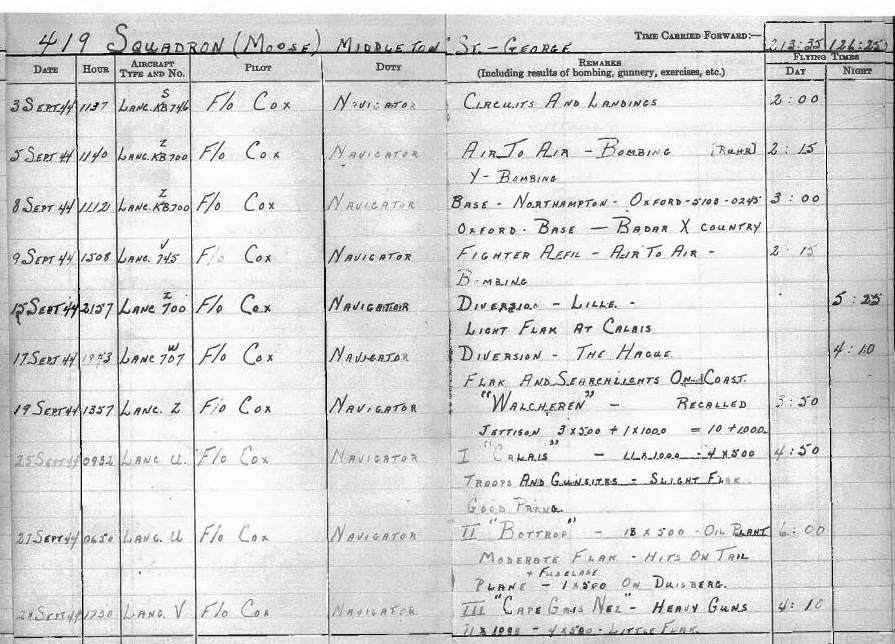 419 SQUADRON (MOOSE) MIDDLETON ST. - GEORGE TIME CARRIED FORWARD:— 213:35 126:25
DATE HOUR AIRCRAFT TYPE AND NO. PILOT DUTY REMARKS (Including results of bombing, gunnery, exercises, etc.) FLYING TIMES DAY NIGHT
3 SEPT 44 1137 LANC. S KB746 F/O COX NAVIGATOR CIRCUITS AND LANDINGS 2:00
5 SEPT 44 1140 LANC. Z KB700 F/O COX NAVIGATOR AIR TO AIR - BOMBING 2:15
Y - BOMBING
8 SEPT 44 1112 LANC. Z KB700 F/O COX NAVIGATOR BASE - NORTHAMPTON - OXFORD - 5100 - 0245 3:00
OXFORD - BASE — BADAR X COUNTRY
9 SEPT 44 1508 LANC. V 745 F/O COX NAVIGATOR FIGHTER AFFIL - AIR TO AIR - 2:15
BOMBING
15 SEPT 44 2157 LANC Z 700 F/O COX NAVIGATOR DIVERSION - LILLE. - 5:25
LIGHT FLAK AT CALAIS
17 SEPT 44 LANC W 707 F/O COX NAVIGATOR DIVERSION - THE HAGUE 4:10
FLAK AND SEARCHLIGHTS ON COAST.
19 SEPT 44 1357 LANC. Z F/O COX NAVIGATOR "WALCHEREN" - RECALLED 3:50
JETTISON 3 X 500 + 1 X 1000 = 10 + 1000
25 SEPT 44 0932 LANC U. F/O COX NAVIGATOR I "CALAIS" - 11 X 1000 - 4 X 500 4:50
TROOPS AND GUNSITES - SLIGHT FLAK
GOOD PRANG.
27 SEPT 44 0650 LANC. U F/O COX NAVIGATOR II "BOTTROP" - 18 X 500 - OIL PLANT 6:00
MODERATE FLAK - HITS ON TAIL
+ FUSELAGE
PLANE - 1 X 500 ON DUISBERG.
SEPT 44 1730 LANC. V F/O COX NAVIGATOR III "CAPE GRIS NEZ" - HEAVY GUNS 4:10
11 X 1000 - 4 X 500 - LITTLE FLAK.